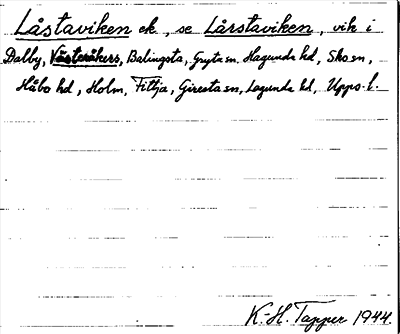 Låstaviken ek, se Lårstaviken, vik i
Dalby, Västeråkers, Balingsta, Gryta sn. Hagunda hd, Sko sn,
Håbo hd, Holm, Fittja, Giresta sn, Lagunda hd, Upps. l.
K.-H. Tapper 1944.